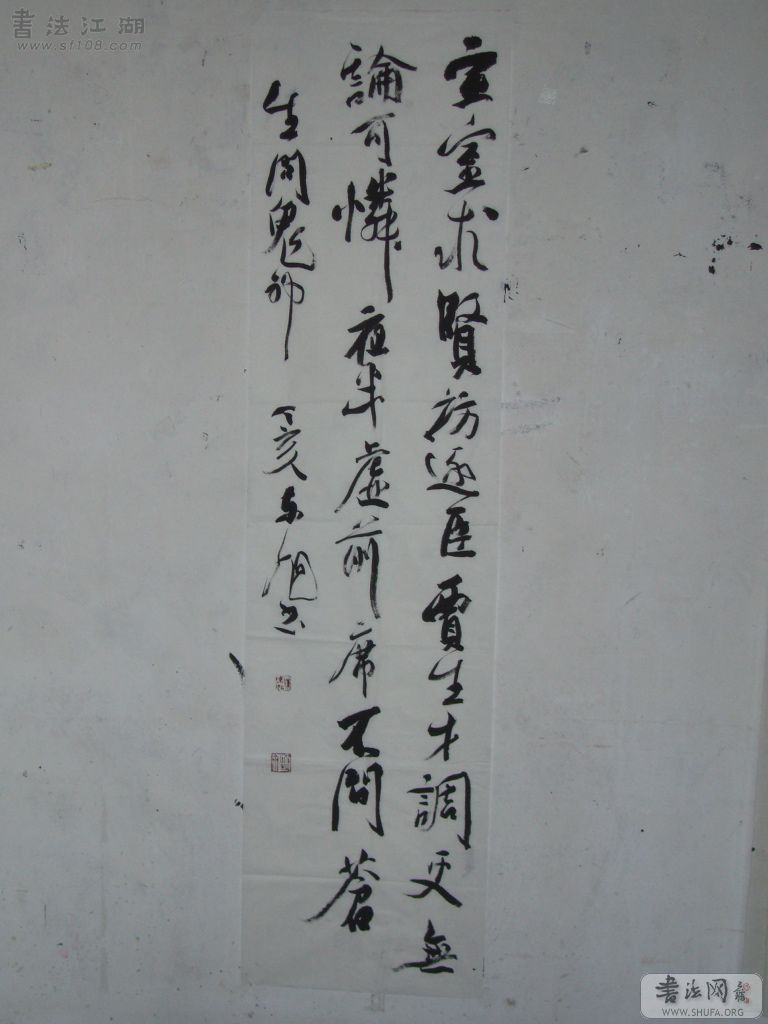 宣室求賢訪逐臣賈生才調更無
論可憐夜半虛前席不問蒼
生問鬼神 丁亥東旭書
書法江湖
www.sf108.com
書法网
WWW.SHUFA.ORG